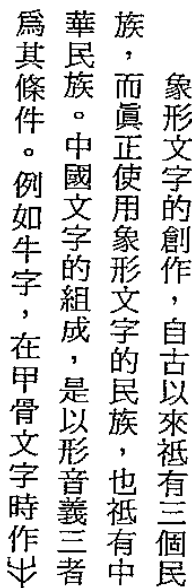 象形文字的創作，自古以來祗有三個民
族，而眞正使用象形文字的民族，也祗有中
華民族。中國文字的組成，是以形音義三者
爲其條件。例如牛字，在甲骨文字時作